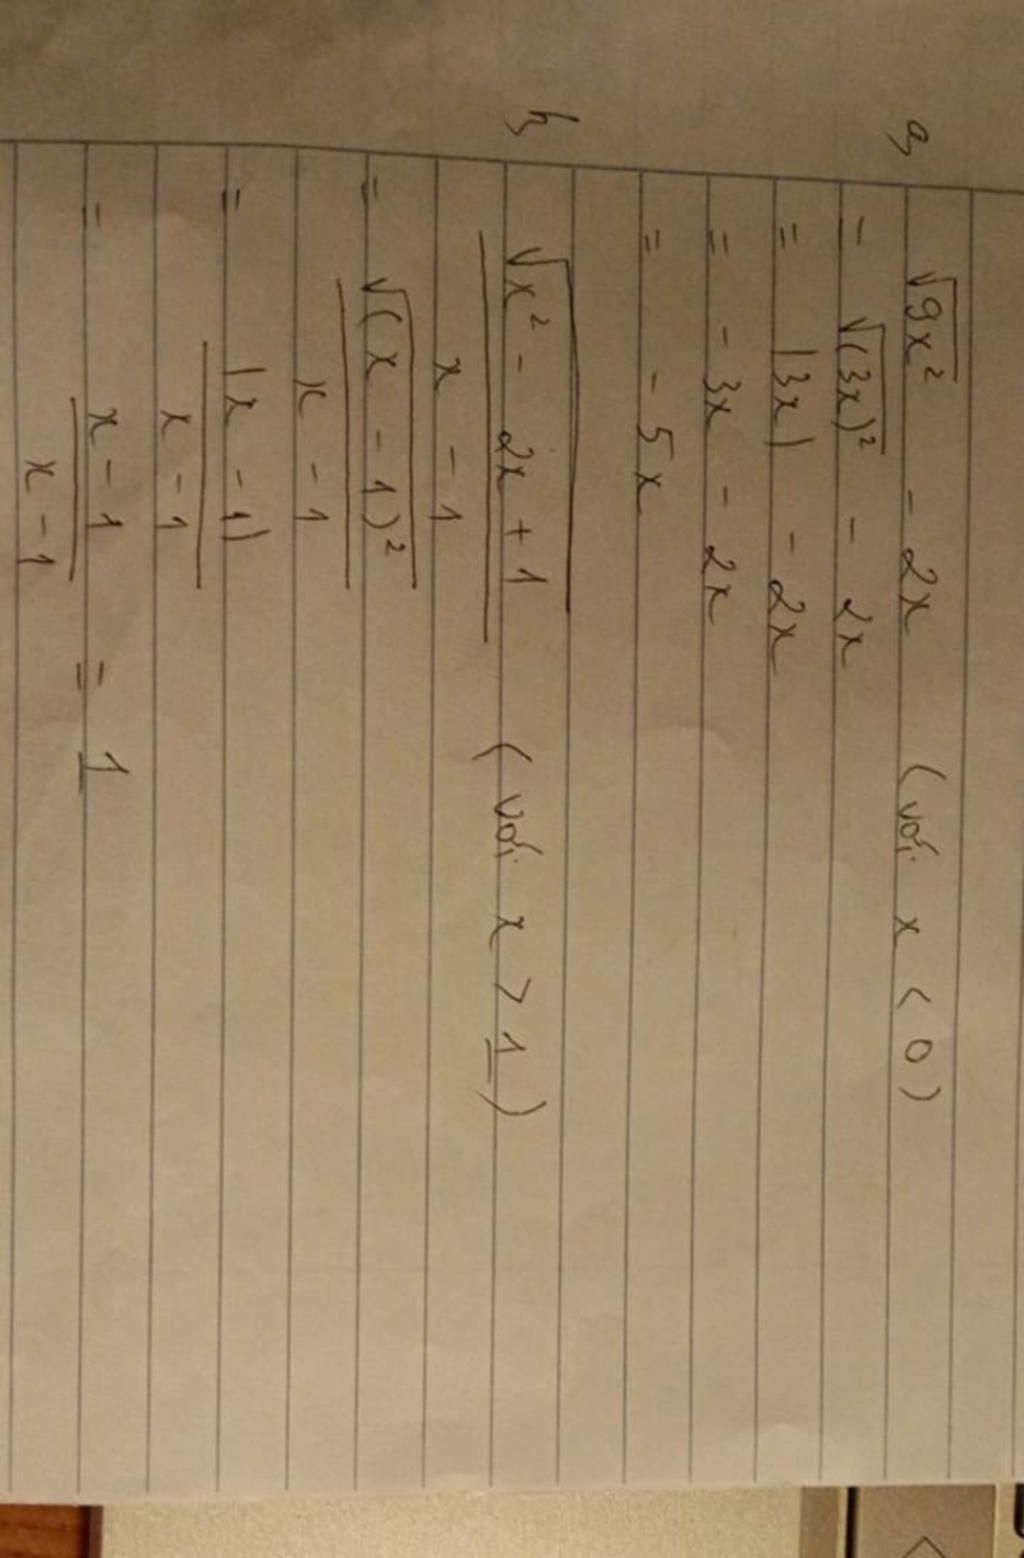 a, √(9x²) - 2x (với x < 0)
= √((3x)²) - 2x
= |3x| - 2x
= - 3x - 2x
= - 5x
b, √(x² - 2x + 1) / (x - 1) (với x > 1)
= √((x - 1)²) / (x - 1)
= |x - 1| / (x - 1)
= (x - 1) / (x - 1) = 1